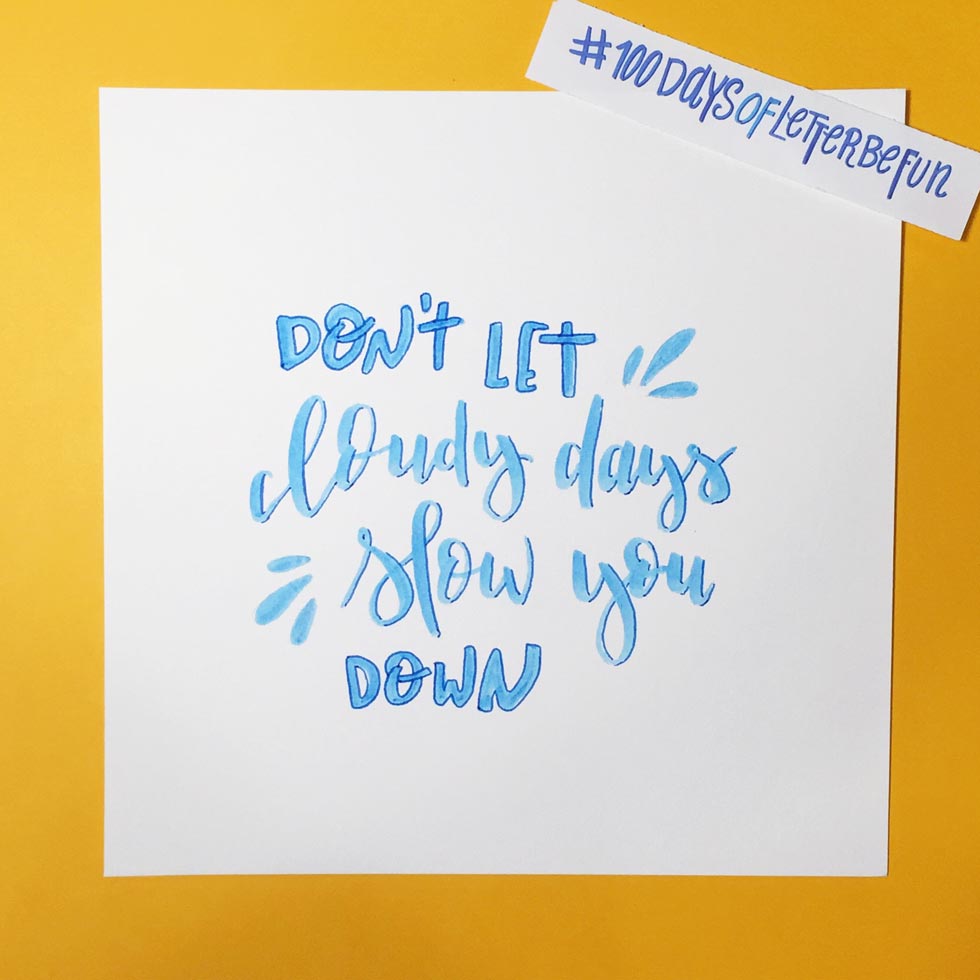 #100DaysOfLetterBeFun
DON'T LET
cloudy days
slow you
DOWN